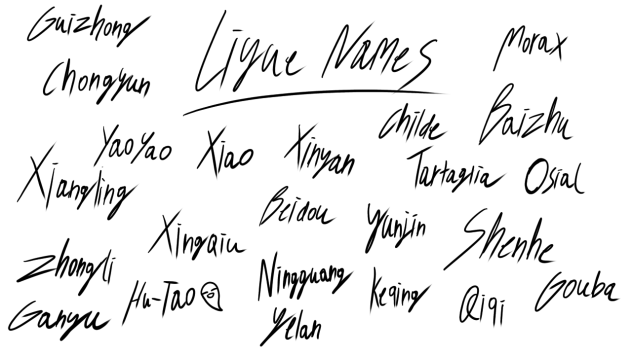 Guizhong
Liyue Names
Morax
Chongyun
Childe
Baizhu
YaoYao
Xiao
Xinyan
Tartaglia
Osial
Xiangling
Beidou
Yunjin
Xingqiu
Shenhe
Zhongli
Hu-Tao
Ningguang
Keqing
Qiqi
Gouba
Ganyu
Yelan